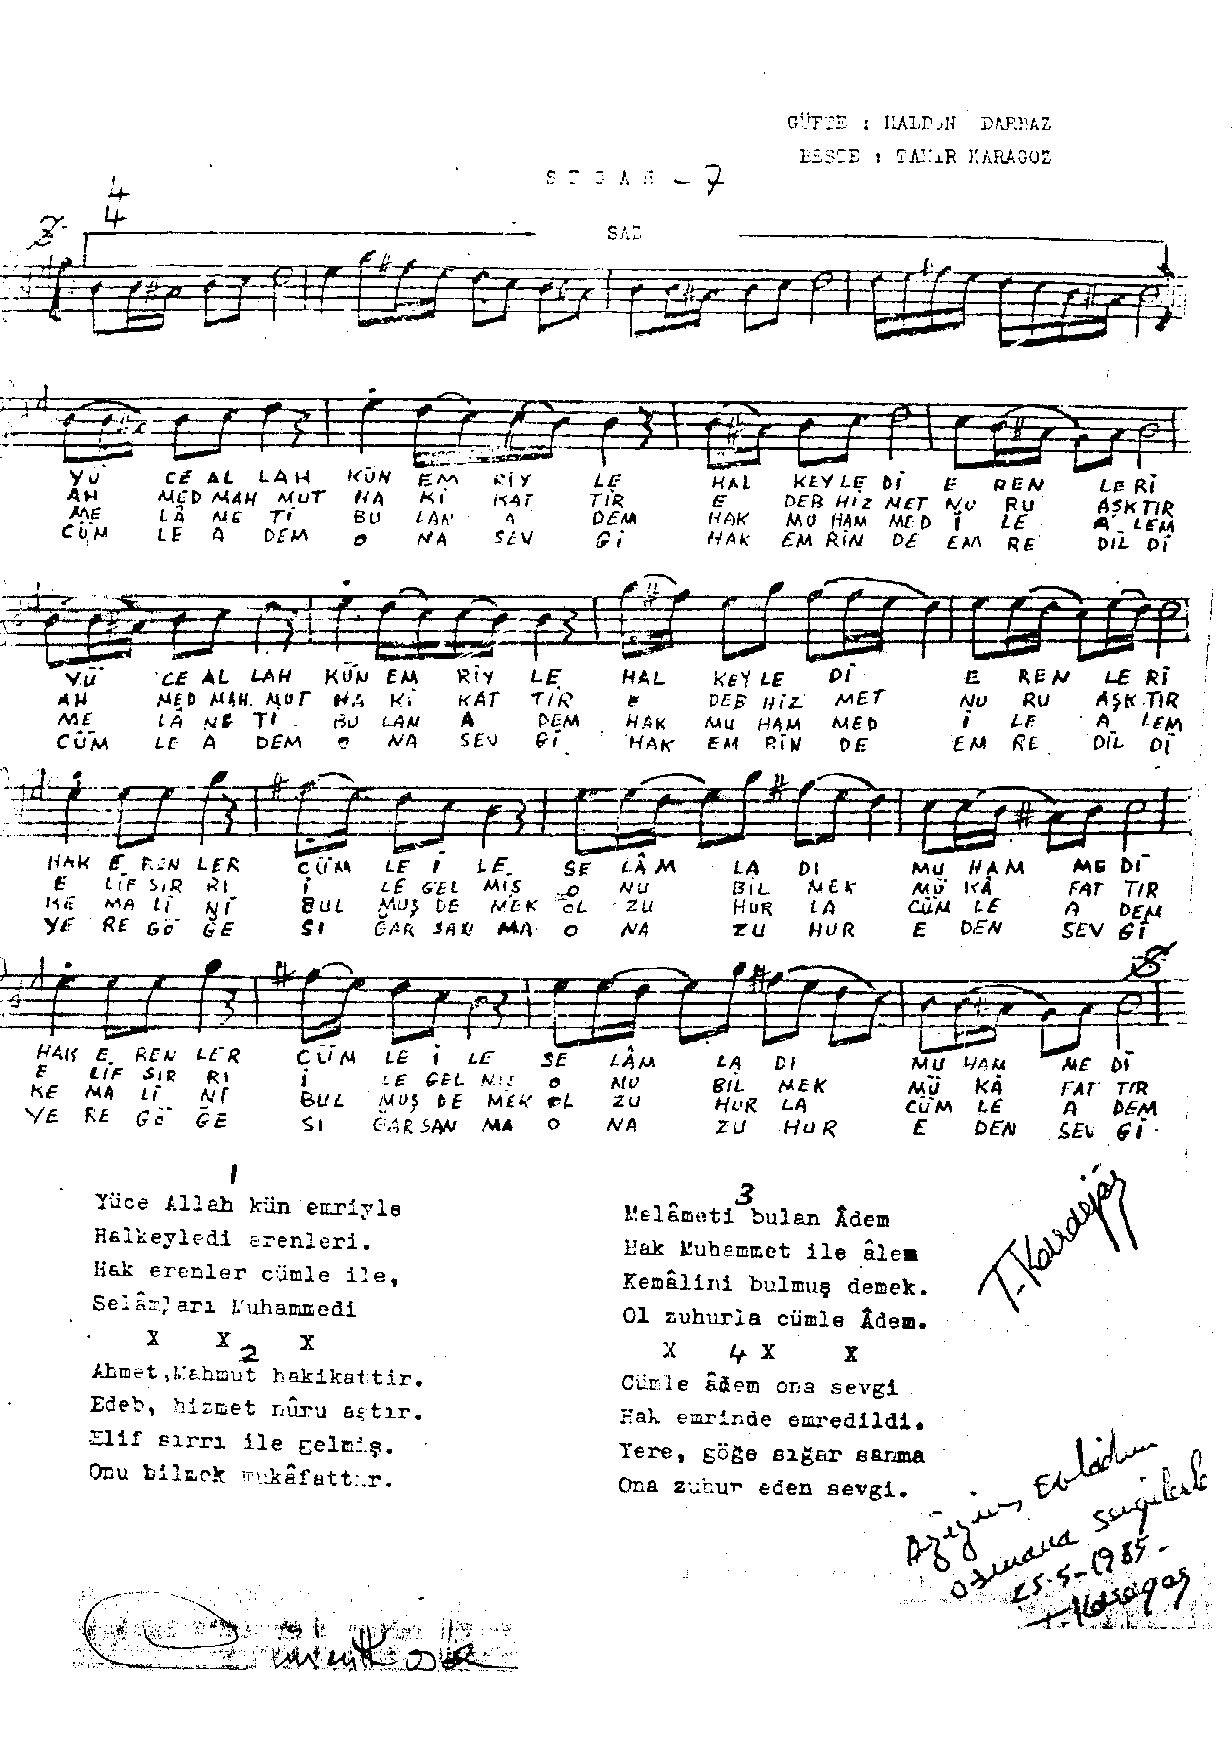 GÜFTE : HALDUN DARBAZ
BESTE : TAHİR KARAGÖZ
SEGAH - 7
4
4
SAZ
YÜ CE AL LAH KÜN EM RİY LE HAL KEY LE Dİ E REN LE Rİ
AH MED MAH MUT HA Kİ KAT TİR E DEB HİZ MET NU RU AŞK TIR
ME LÂ ME Tİ BU LAN A DEM HAK MU HAM MED İ LE A LEM
CÜM LE A DEM O NA SEV Gİ HAK EM RİN DE EM RE DİL Dİ
YÜ CE AL LAH KÜN EM RİY LE HAL KEY LE Dİ E REN LE Rİ
AH MED MAH MUT HA Kİ KAT TİR E DEB HİZ MET NU RU AŞK TIR
ME LÂ ME Tİ BU LAN A DEM HAK MU HAM MED İ LE A LEM
CÜM LE A DEM O NA SEV Gİ HAK EM RİN DE EM RE DİL Dİ
HAK E REN LER CÜM LE İ LE SE LÂM LA DI MU HAM ME Dİ
E LİF SIR RI İ LE GEL MİŞ O NU BİL MEK MÜ KÂ FAT TIR
KE MA Lİ Nİ BUL MUŞ DE MEK OL ZU HUR LA CÜM LE A DEM
YE RE GÖ ĞE SI ĞAR SAN MA O NA ZU HUR E DEN SEV Gİ
HAK E REN LER CÜM LE İ LE SE LÂM LA DI MU HAM ME Dİ
E LİF SIR RI İ LE GEL MİŞ O NU BİL MEK MÜ KÂ FAT TIR
KE MA Lİ Nİ BUL MUŞ DE MEK OL ZU HUR LA CÜM LE A DEM
YE RE GÖ ĞE SI ĞAR SAN MA O NA ZU HUR E DEN SEV Gİ
1
Yüce Allah kün emriyle
Halkeyledi erenleri.
Hak erenler cümle ile,
Selâmları Muhammedi
X X X
2
Ahmet, Mahmut hakikattir.
Edeb, hizmet nûru aştır.
Elif sırrı ile gelmiş.
Onu bilmek mukâfattır.
3
Melâmeti bulan Âdem
Hak Muhammet ile âlem
Kemâlini bulmuş demek.
Ol zuhurla cümle Âdem.
X 4 X X
Cümle âdem ona sevgi
Hak emrinde emredildi.
Yere, göğe sığar sanma
Ona zuhur eden sevgi.
Azizim Evladım
Osmana sevgilerle
25-5-1985-
T. Karagöz